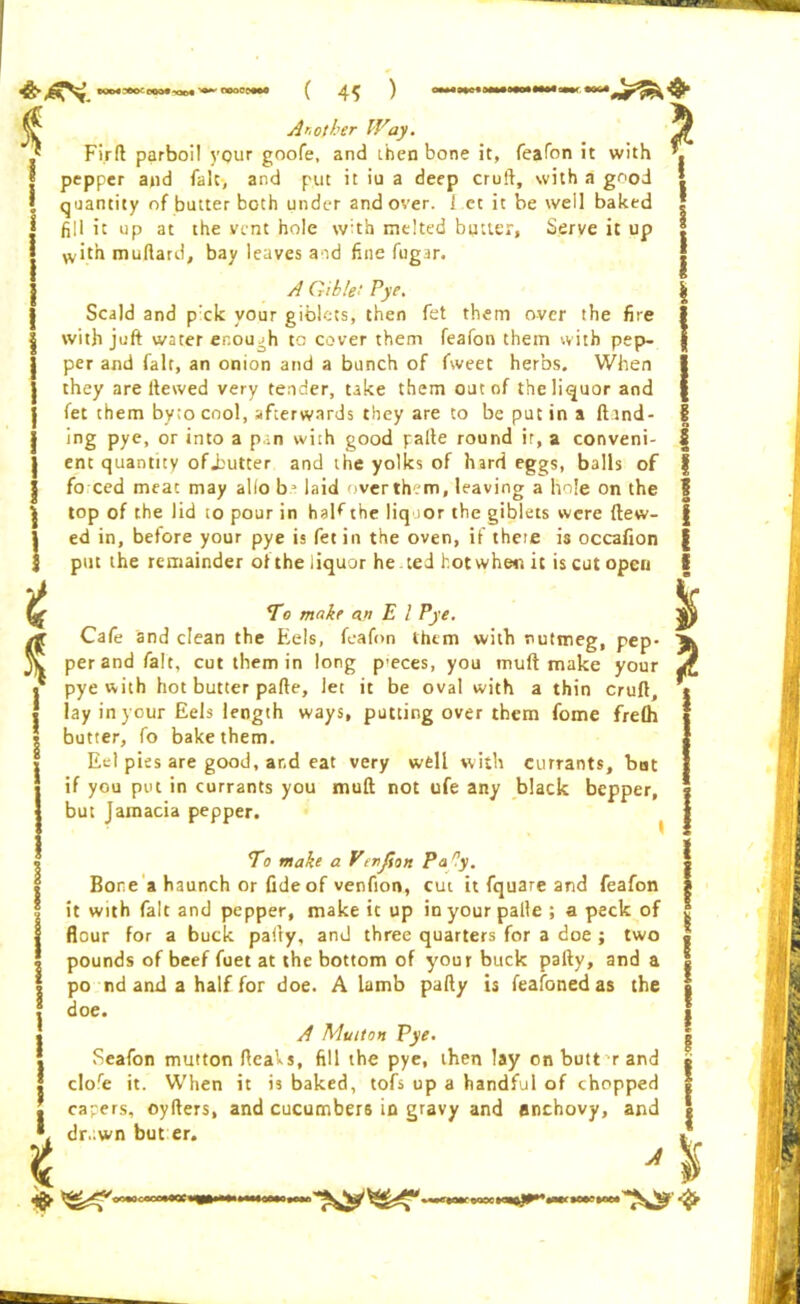 ( 45 )
Another Way.
Firſt parboil your gooſe, and then bone it, ſeaſon it with
pepper and ſalt, and put it iu a deep cruſt, with a good
quantity of butter both under and over. Let it be well baked
fill it up at the vent hole with melted butter, Serve it up
with muſtard, bay leaves and fine ſugar.
A Giblet Pye.
Scald and pick your giblets, then ſet them over the fire
with juſt water enough to cover them ſeaſon them with pep-
per and ſalt, an onion and a bunch of ſweet herbs. When
they are ſtewed very tender, take them out of the liquor and
ſet them by to cool, afterwards they are to be put in a ſtand-
ing pye, or into a pan with good paſte round it, a conveni-
ent quantity of butter and the yolks of hard eggs, balls of
forced meat may alſo be laid over them, leaving a hole on the
top of the lid to pour in half the liquor the giblets were ſtew-
ed in, before your pye is ſet in the oven, if there is occaſion
put the remainder of the liquor heated hot when it is cut open
To make an Eel Pye.
Caſe and clean the Eels, ſeaſon them with nutmeg, pep-
per and ſalt, cut them in long pieces, you muſt make your
pye with hot butter paſte, let it be oval with a thin cruſt,
lay in your Eels length ways, putting over them ſome freſh
butter, ſo bake them.
Eel pies are good, and eat very well with currants, but
if you put in currants you muſt not uſe any black bepper,
but Jamacia pepper.
To make a Venſion Paſty.
Bone a haunch or ſide of venſion, cut it ſquare and ſeaſon
it with ſalt and pepper, make it up in your paſte ; a peck of
flour for a buck paſty, and three quarters for a doe ; two
pounds of beef ſuet at the bottom of your buck paſty, and a
pound and a half for doe. A lamb paſty is ſeaſoned as the
doe.
A Mutton Pye.
Seaſon mutton ſteaks, fill the pye, then lay on butter and
cloſe it. When it is baked, toſs up a handful of chopped
capers, oyſters, and cucumbers in gravy and anchovy, and
drawn butter.
A